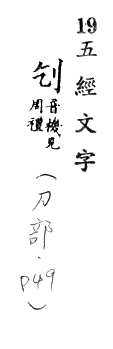 19五經文字
刉音機見
周禮
(刀部.P49)